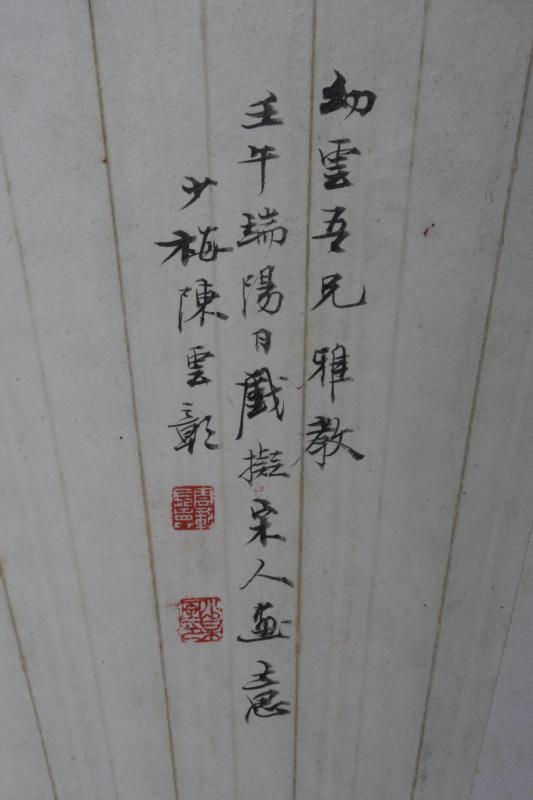 幼雲吾兄雅教
壬午瑞陽日戲擬宋人畫意
少梅陳雲彰